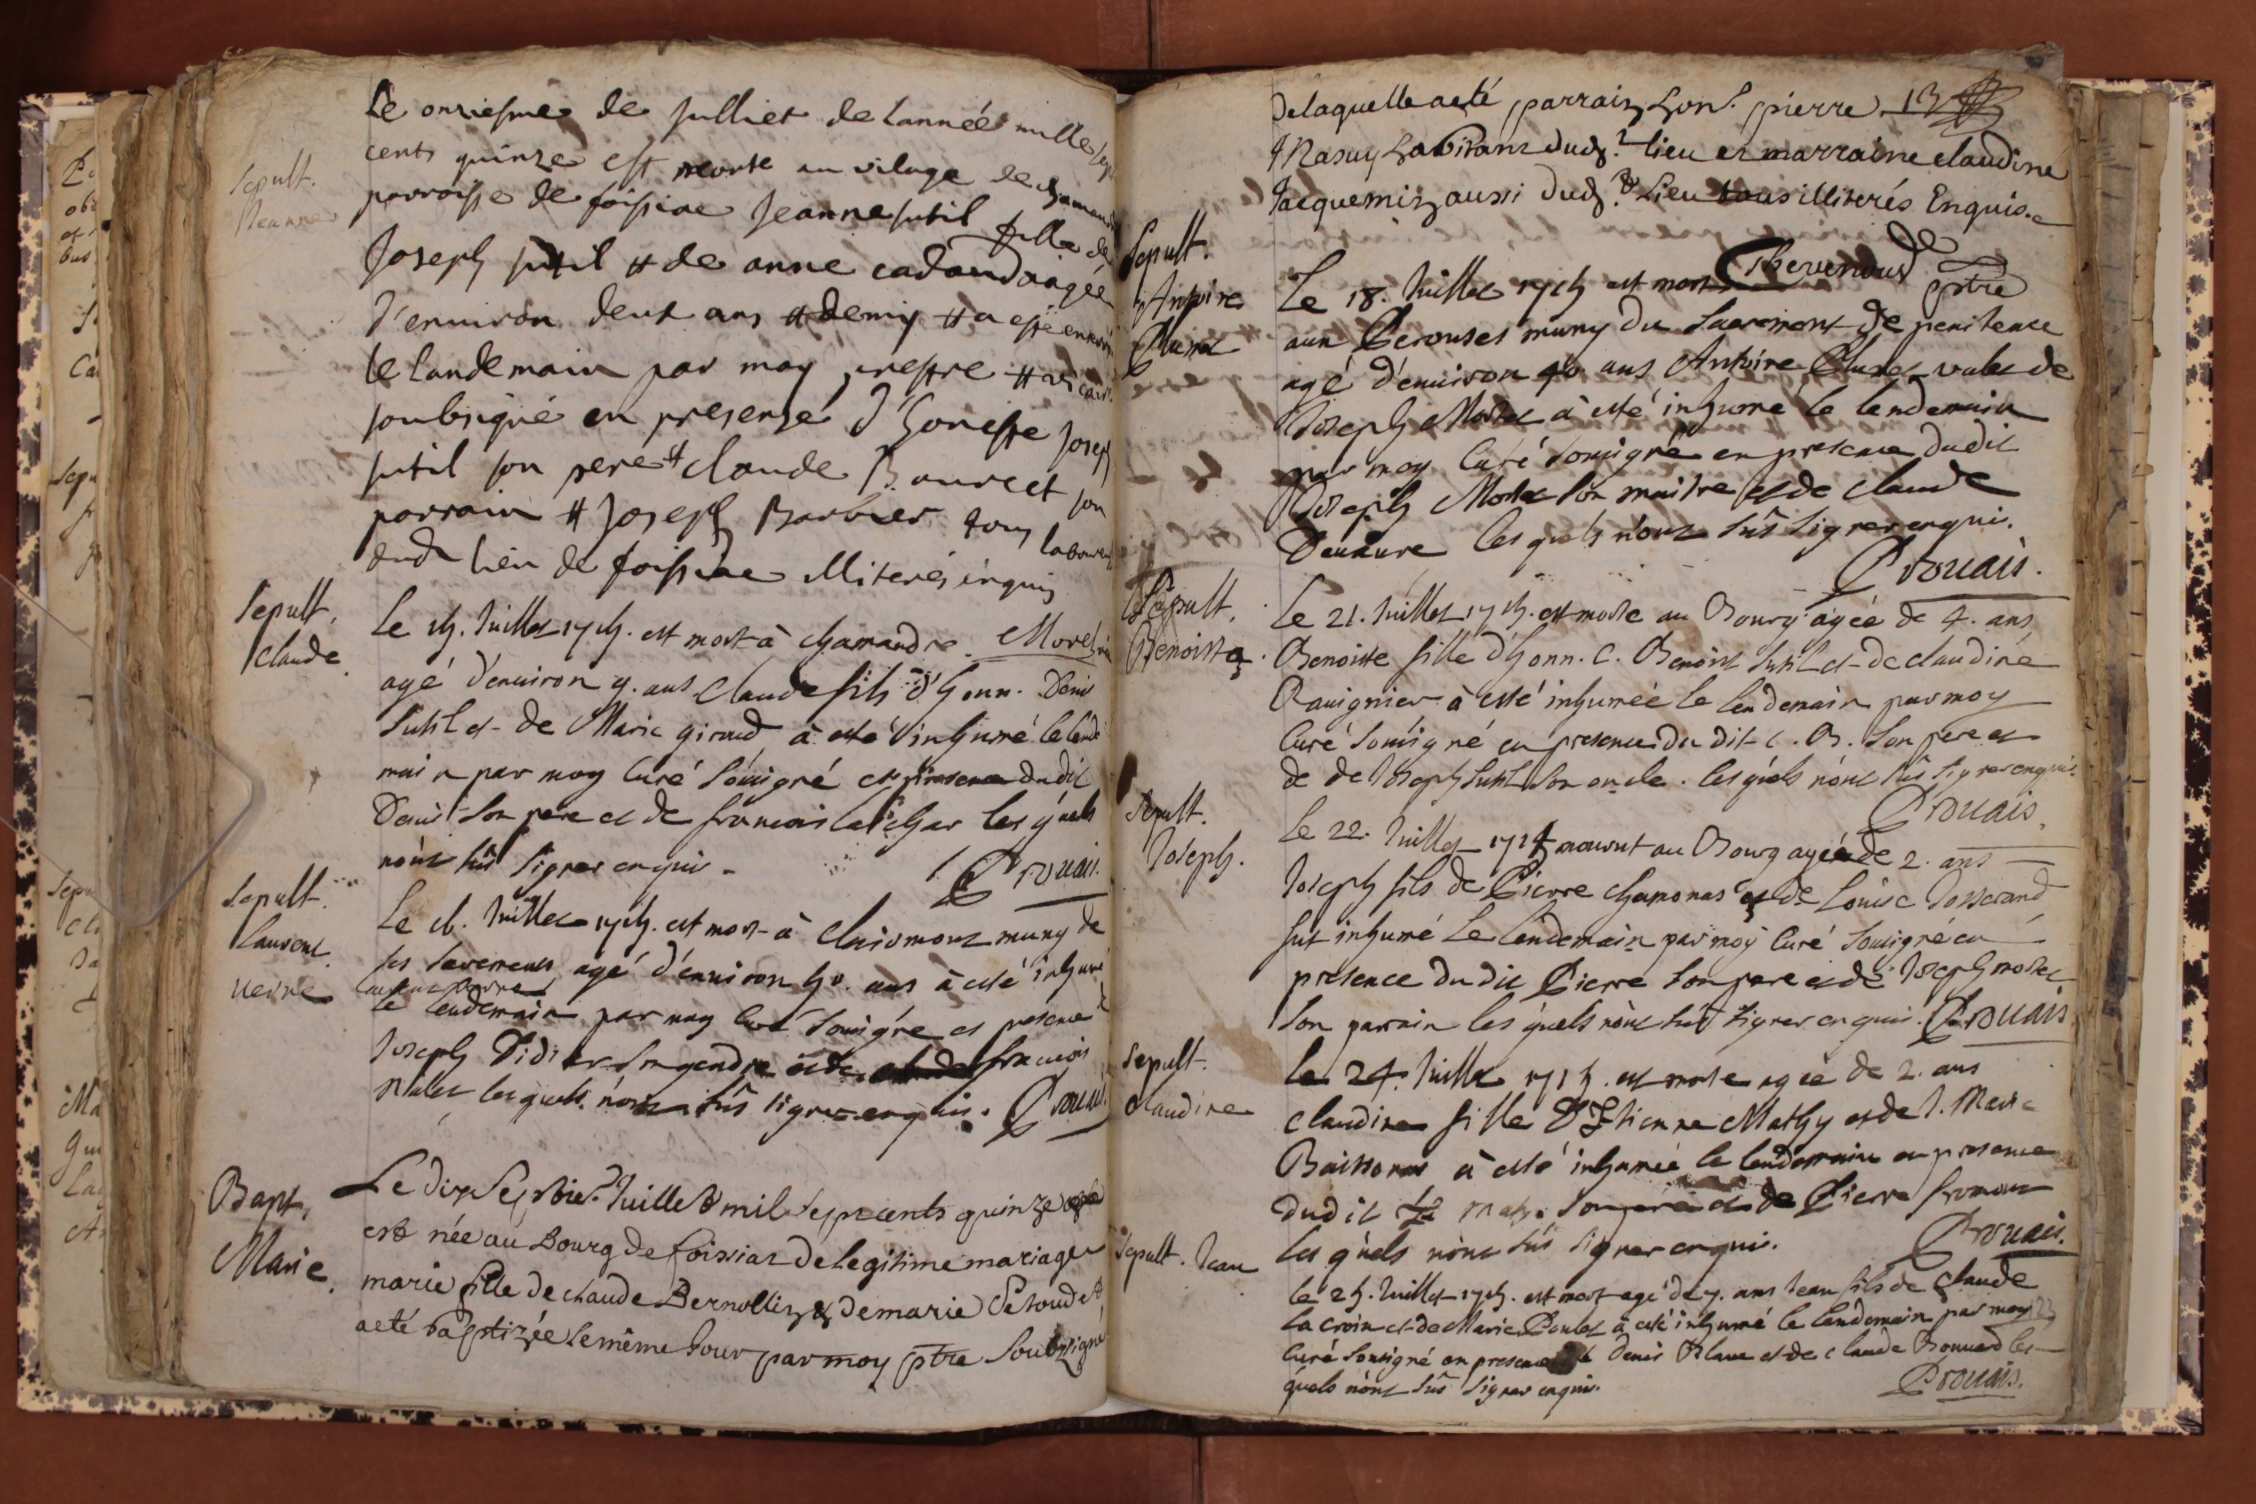 Sepult.
Jeanne
Le onziesme de Julliet de lannée mille sep
cents quinze est morte au vilage de
parroisse de foissiae Jeanne sutil fille de
Joseph sutil & de anne cadoud aagée
d'environ deux ans & demy & a esté enterré
le landemain par moy prestre & vicair
soubsigné en presense d'honeste Joseph
sutil son pere & claude Bourcet son
parrain & Joseph Barbier tous laboureurs
dud lieu de foissiae illiterés enquis
Sepult.
Claude
Le 15. Juillet 1715. est mort à chamandre
agé d'environ 9. ans Claude fils d'honn. Denis
Sutil et de Marie giroud à esté inhumé le lende
main par moy Curé soussigné en presence du dit
Denis son pere et de francois les quels
n'ont sus signer enquis.
Prouais.
Sepult.
laurent
verne
Le 16. Juillet 1715. est mort à Clairmont muny de
ses sacremens agé d'environ 50. ans à esté inhumé
laurent verne
le lendemain par moy Curé soussigné et presence de
Joseph Didier son gendre et de francois
lesquels n'ont sus signer enquis. Prouais
Bapt.
Marie.
Le dix Septie. Juillet mil sept cents quinze
est née au Bourg de foissiaz de legitime mariage
marie fille de claude Bernollin & de marie Petoudet
a eté baptizée le même Jour par moy ptre soubsigné
13
de laquelle a eté parrain hon. pierre
habitant dud. lieu et marraine claudine
Jacquemin aussi dud. lieu tous illiterés Enquis.
Thevenoud ptre
Sepult.
Antoine
Clunet
Le 18. Juillet 1715 est mort
aux Perouses muny du sacrement de penitence
agé d'environ 40 ans Antoine Clunet valet de
Joseph Morel à esté inhumé le lendemain
par moy Curé soussigné en presence dudit
Joseph Morel son maitre et de claude
les quels n'ont sus signer enquis.
Prouais.
Sepult.
Benoiste.
Le 21. Juillet 1715. est morte au Bourg agée de 4. ans
Benoiste fille d'honn. C. Benoist Sutil et de claudine
Rauignier à esté inhumée le lendemain par moy
Curé soussigné en presence du dit C. B. son pere et
de de Joseph Sutil son oncle. les quels n'ont sus signer enquis.
Prouais.
Sepult.
Joseph.
Le 22. Juillet 1715 mourut au Bourg agé de 2. ans
Joseph fils de Pierre chamonas et de Louise Josserand
fut inhumé Le lendemain par moy Curé soussigné en
presence du dit Pierre son pere et de Joseph morel
son parain les quels n'ont sus signer enquis. Prouais
Sepult.
Claudine
Le 24. Juillet 1715. est morte agée de 2. ans
Claudine fille d'Etienne Mathy et de J. Marie
à esté inhumée le lendemain en presence
dudit Et. Mathy son pere et de Pierre fromont
les quels n'ont sus signer enquis.
Prouais.
Sepult. Jean
Le 25. Juillet 1715. est mort agé de 7. ans Jean fils de Claude
La croix et de Marie Poulet à esté inhumé le lendemain par moy
Curé soussigné en presence de Denis Blanc et de claude Bouvard les
quels n'ont sus signer enquis.
Prouais.